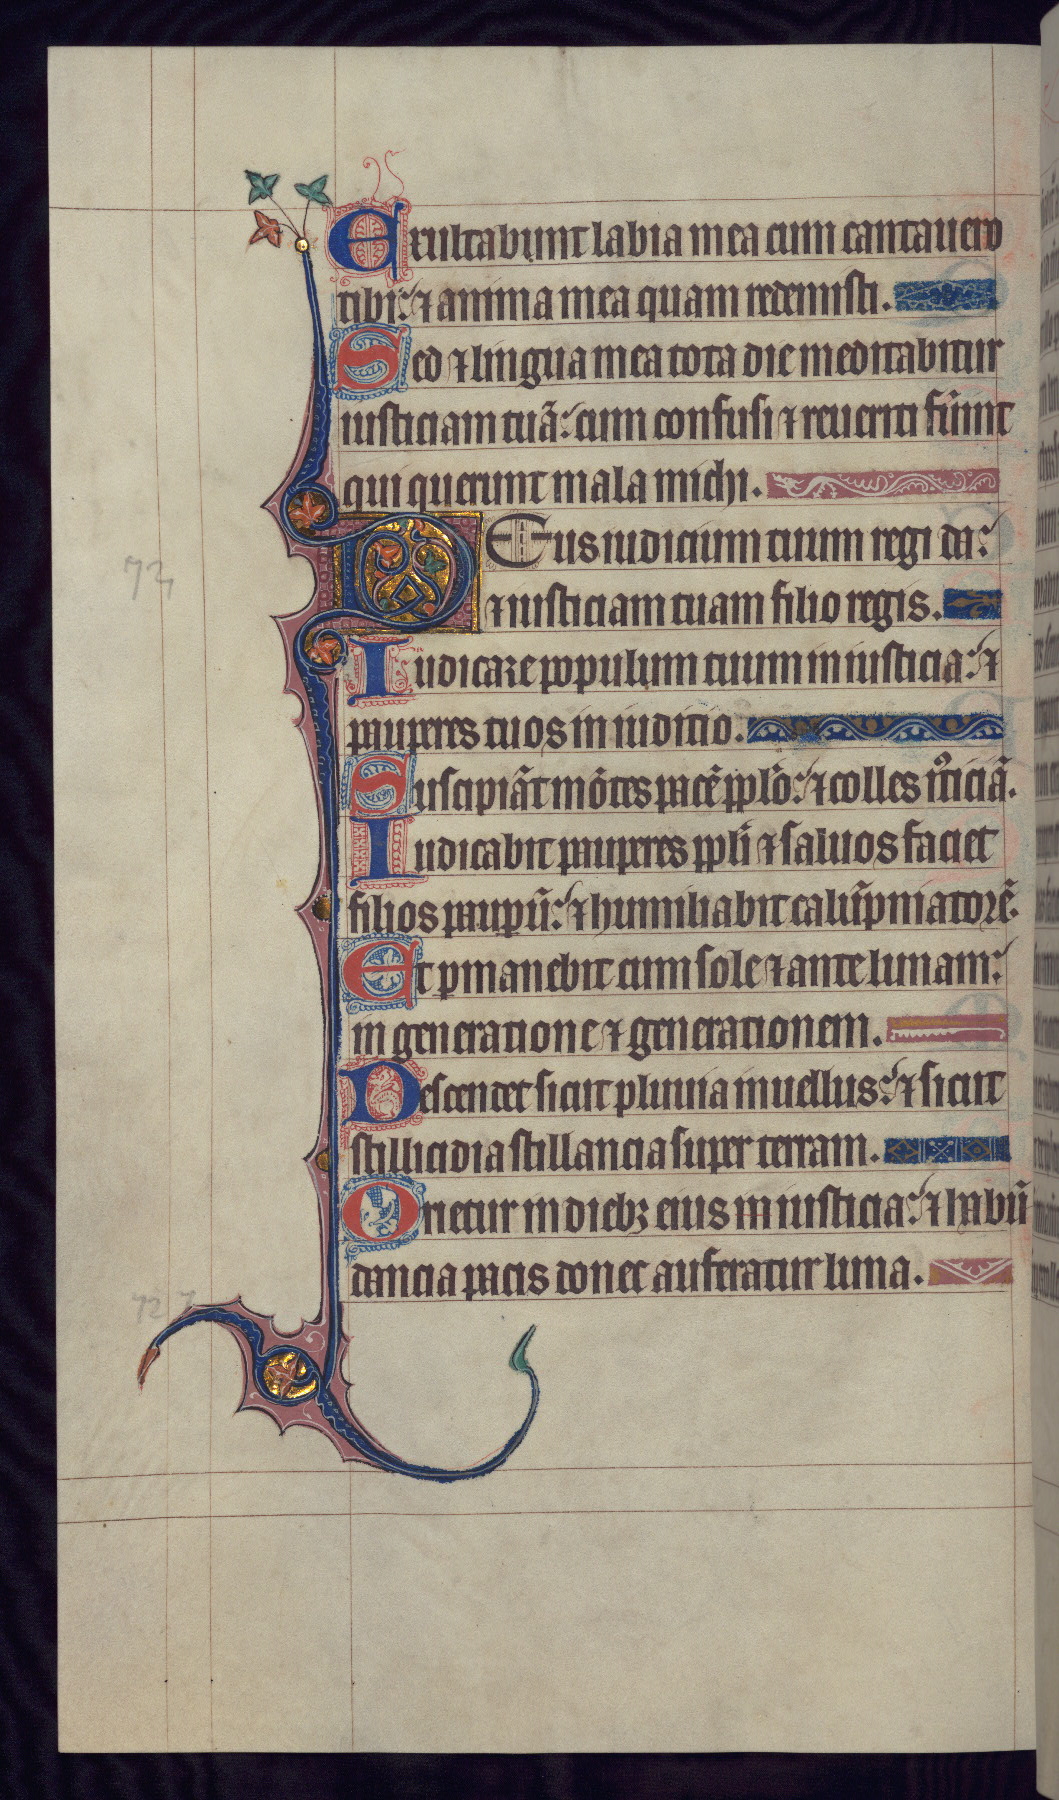 Exultabunt labia mea cum cantauero
tibi: ⁊ anima mea quam redemisti.
Sed ⁊ lingua mea tota die meditabitur
iusticiam tuā: cum confusi ⁊ reueriti fūint
qui querunt mala michi.
DEus iudicium tuum regi da:
72
⁊ iusticiam tuam filio regis.
Iudicare populum tuum in iusticia: ⁊
pauperes tuos in iudicio.
Suscipiāt mōtes pacē pplō: ⁊ colles iᵒticiā.
Iudicabit pauperes ppli ⁊ saluos faciet
filios paupū: ⁊ humiliabit calūpniatorē.
Et pmanebit cum sole ⁊ ante lunam:
in generatione ⁊ generationem.
Descendet sicut pluuia in uellus: ⁊ sicut
stillicidia stillancia super terram.
Orietur in diebꝫ eius in iusticia: ⁊ habū
dancia pacis donec auferatur luna.
72 7